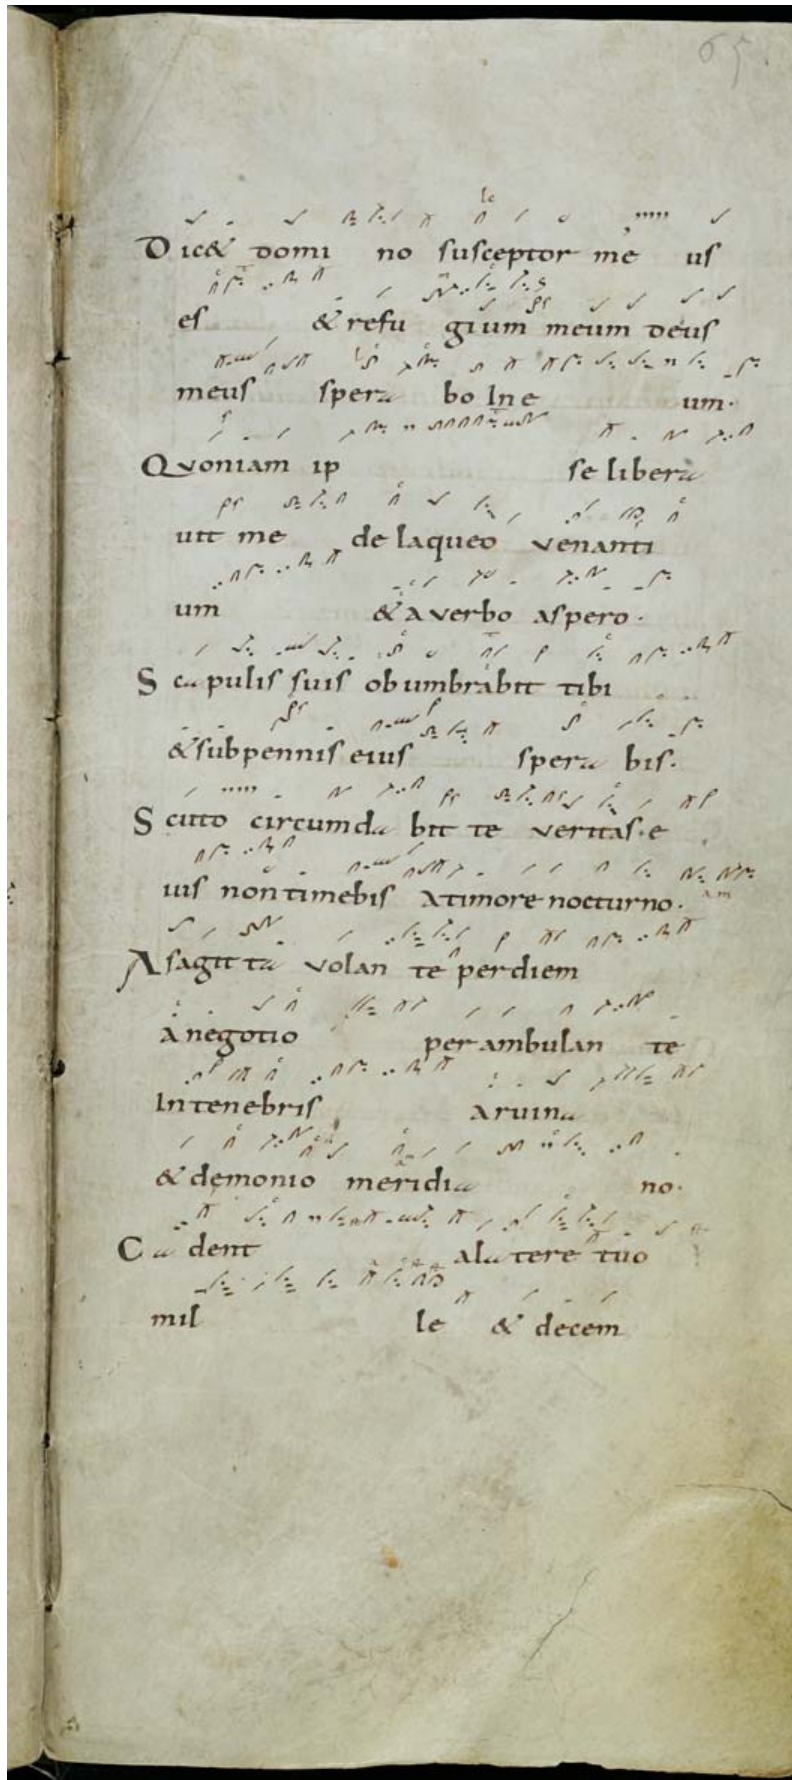 65.
Dic& domi no susceptor me us
es & refu gium meum deus
meus spera bo In e um.
Quoniam ip se libera
uit me de laqueo venanti
um & a verbo aspero.
Scapulis suis obumbrabit tibi
& sub pennis eius spera bis.
Scuto circumda bit te veritas. e
ius non timebis a timore nocturno.
A sagit ta volan te per diem
a negotio per ambulan te
In tenebris a ruina
& demonio meridia no.
Ca dent a latere tuo
mil le & decem